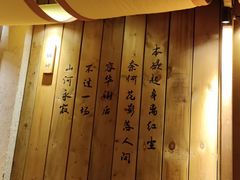 本欲起身离红尘
奈何花影落人间
容华谢后
不过一场
山河永寂